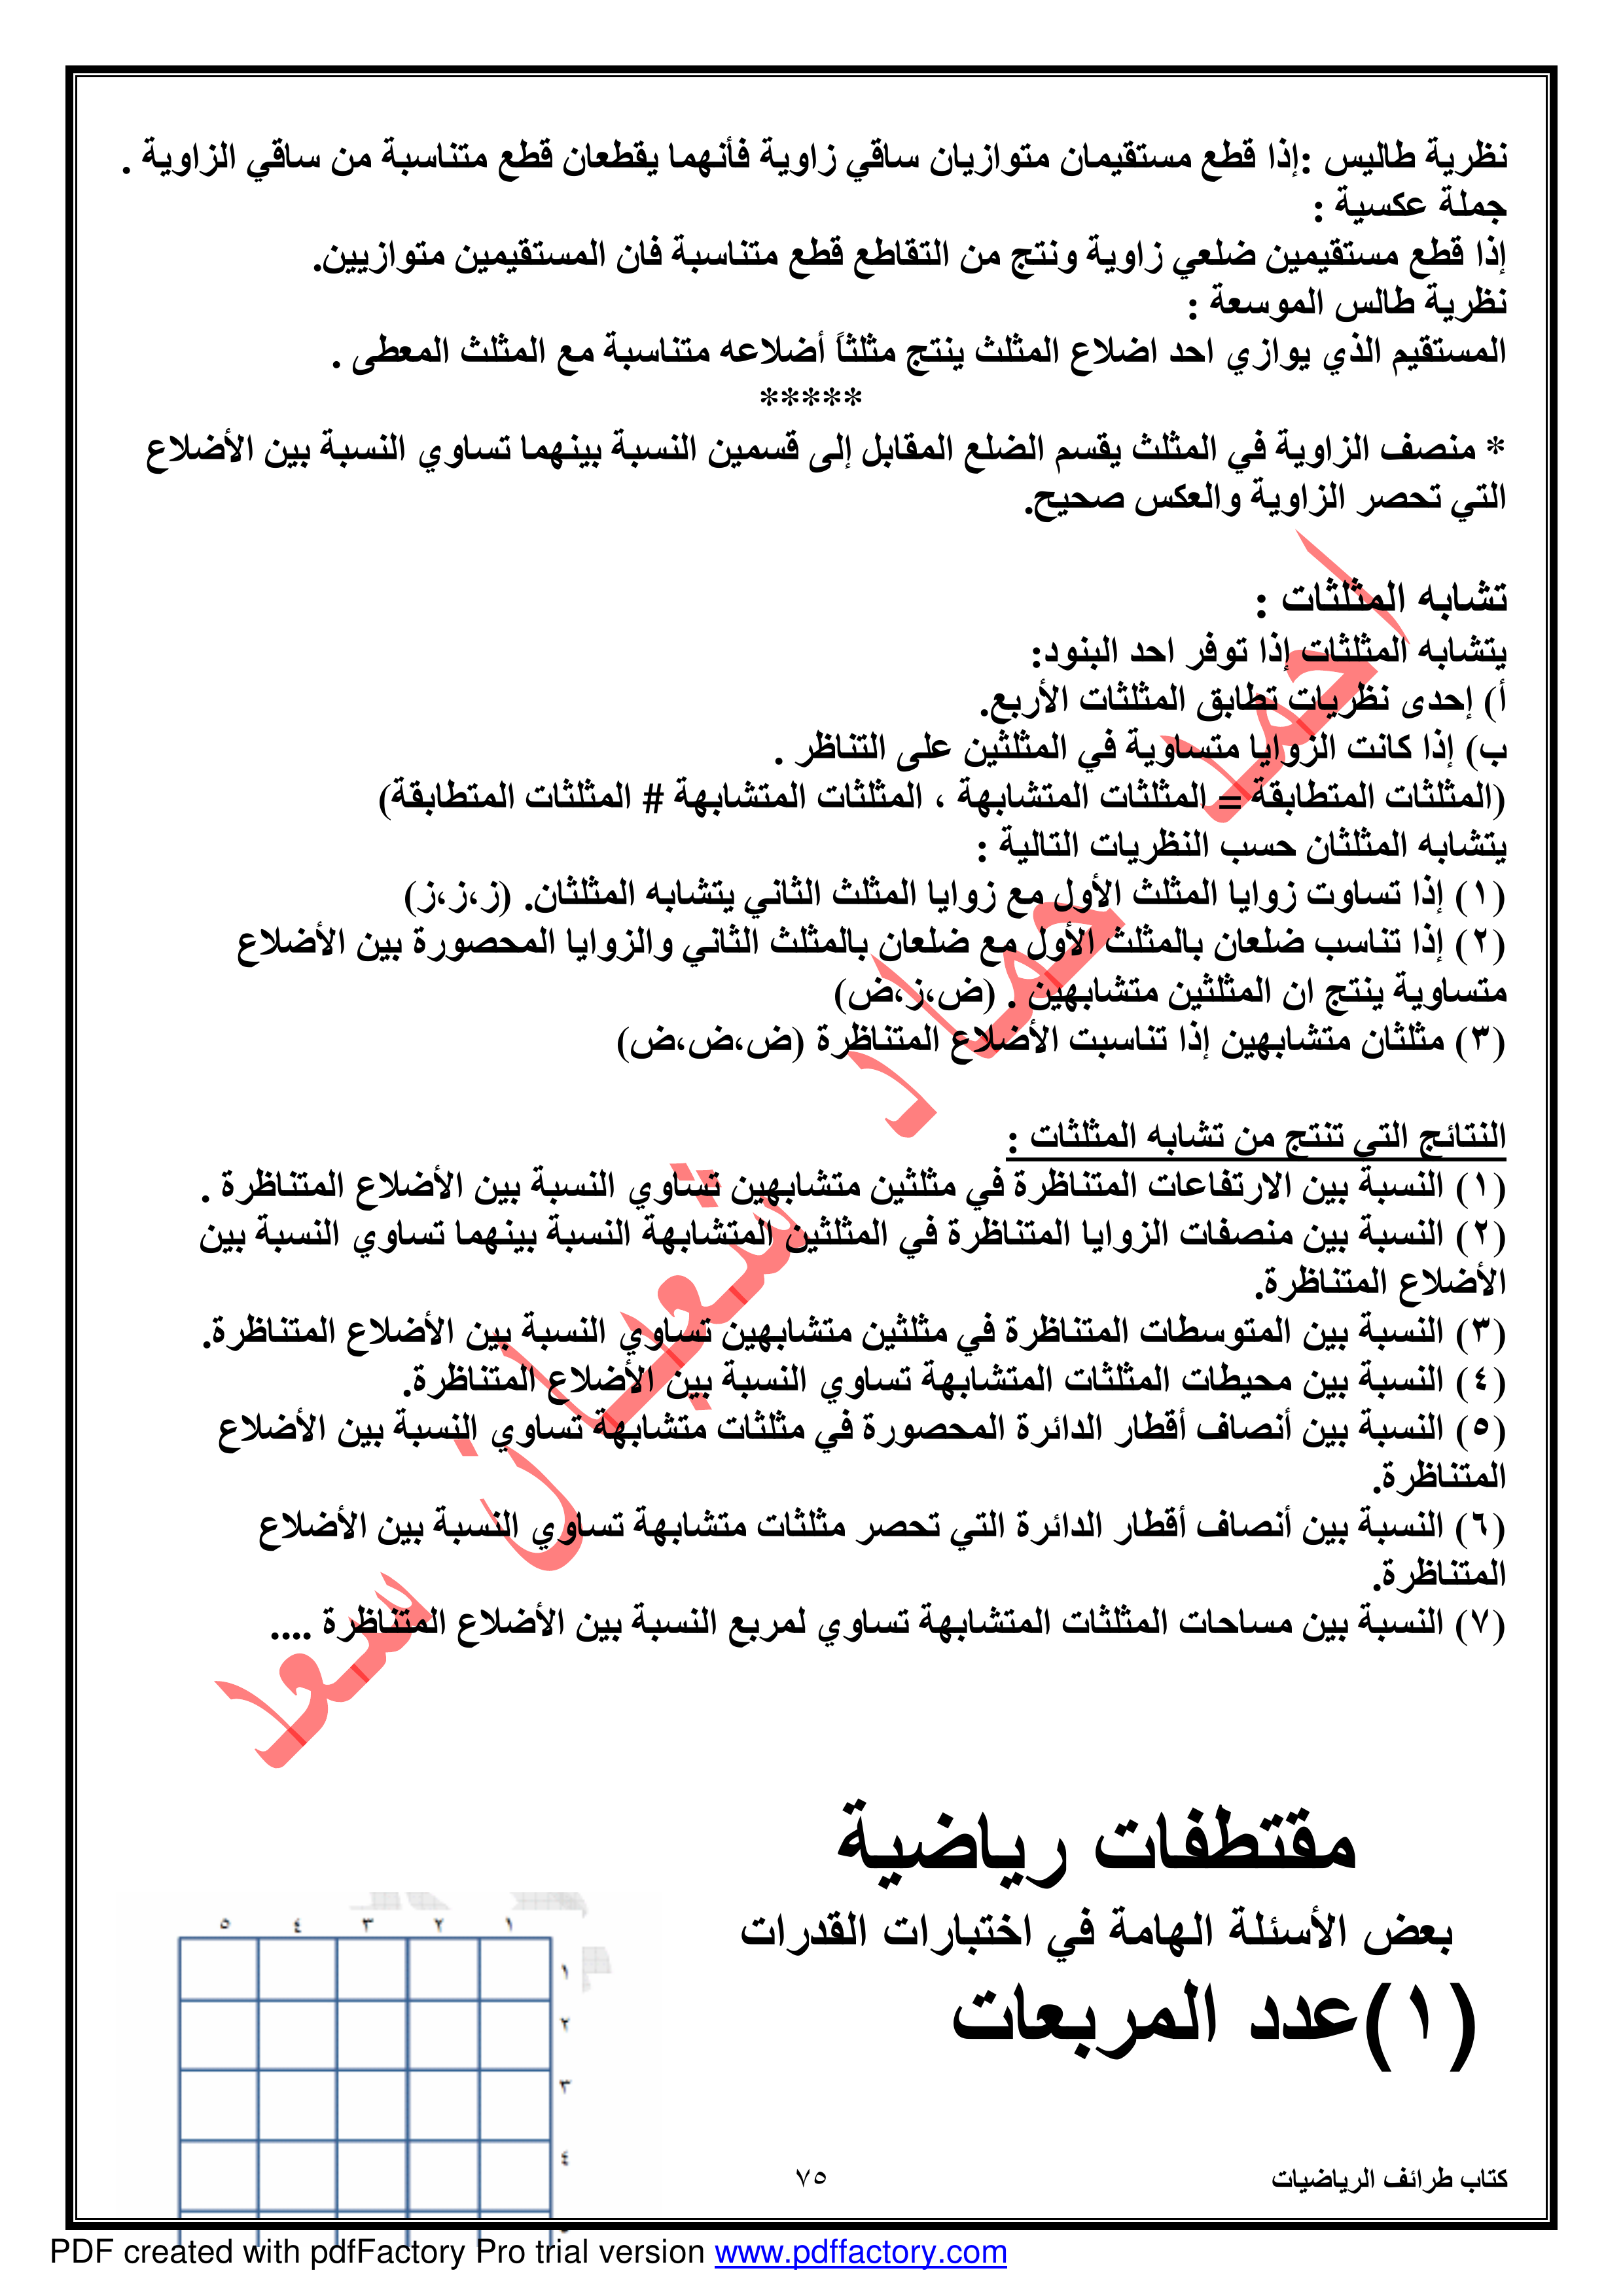 نظرية طاليس :إذا قطع مستقيمان متوازيان ساقي زاوية فأنهما يقطعان قطع متناسبة من ساقي الزاوية .
جملة عكسية :
إذا قطع مستقيمين ضلعي زاوية ونتج من التقاطع قطع متناسبة فان المستقيمين متوازيين.
نظرية طالس الموسعة :
المستقيم الذي يوازي احد اضلاع المثلث ينتج مثلثاً أضلاعه متناسبة مع المثلث المعطى .
*****
* منصف الزاوية في المثلث يقسم الضلع المقابل إلى قسمين النسبة بينهما تساوي النسبة بين الأضلاع
التي تحصر الزاوية والعكس صحيح.
تشابه المثلثات :
يتشابه المثلثات إذا توفر احد البنود:
أ) إحدى نظريات تطابق المثلثات الأربع.
ب) إذا كانت الزوايا متساوية في المثلثين على التناظر .
(المثلثات المتطابقة = المثلثات المتشابهة ، المثلثات المتشابهة # المثلثات المتطابقة)
يتشابه المثلثان حسب النظريات التالية :
(١) إذا تساوت زوايا المثلث الأول مع زوايا المثلث الثاني يتشابه المثلثان. (ز،ز،ز)
(٢) إذا تناسب ضلعان بالمثلث الأول مع ضلعان بالمثلث الثاني والزوايا المحصورة بين الأضلاع
متساوية ينتج ان المثلثين متشابهين . (ض،ز،ض)
(٣) مثلثان متشابهين إذا تناسبت الأضلاع المتناظرة (ض،ض،ض)
النتائج التي تنتج من تشابه المثلثات :
(١) النسبة بين الارتفاعات المتناظرة في مثلثين متشابهين تساوي النسبة بين الأضلاع المتناظرة .
(٢) النسبة بين منصفات الزوايا المتناظرة في المثلثين المتشابهة النسبة بينهما تساوي النسبة بين
الأضلاع المتناظرة.
(٣) النسبة بين المتوسطات المتناظرة في مثلثين متشابهين تساوي النسبة بين الأضلاع المتناظرة.
(٤) النسبة بين محيطات المثلثات المتشابهة تساوي النسبة بين الأضلاع المتناظرة.
(٥) النسبة بين أنصاف أقطار الدائرة المحصورة في مثلثات متشابهة تساوي النسبة بين الأضلاع
المتناظرة.
(٦) النسبة بين أنصاف أقطار الدائرة التي تحصر مثلثات متشابهة تساوي النسبة بين الأضلاع
المتناظرة.
(٧) النسبة بين مساحات المثلثات المتشابهة تساوي لمربع النسبة بين الأضلاع المتناظرة ....
احمد حماد شعبان سعد
مقتطفات رياضية
بعض الأسئلة الهامة في اختبارات القدرات
(١)عدد المربعات
١ ٢ ٣ ٤ ٥
١
٢
٣
٤
كتاب طرائف الرياضيات ٧٥
PDF created with pdfFactory Pro trial version www.pdffactory.com